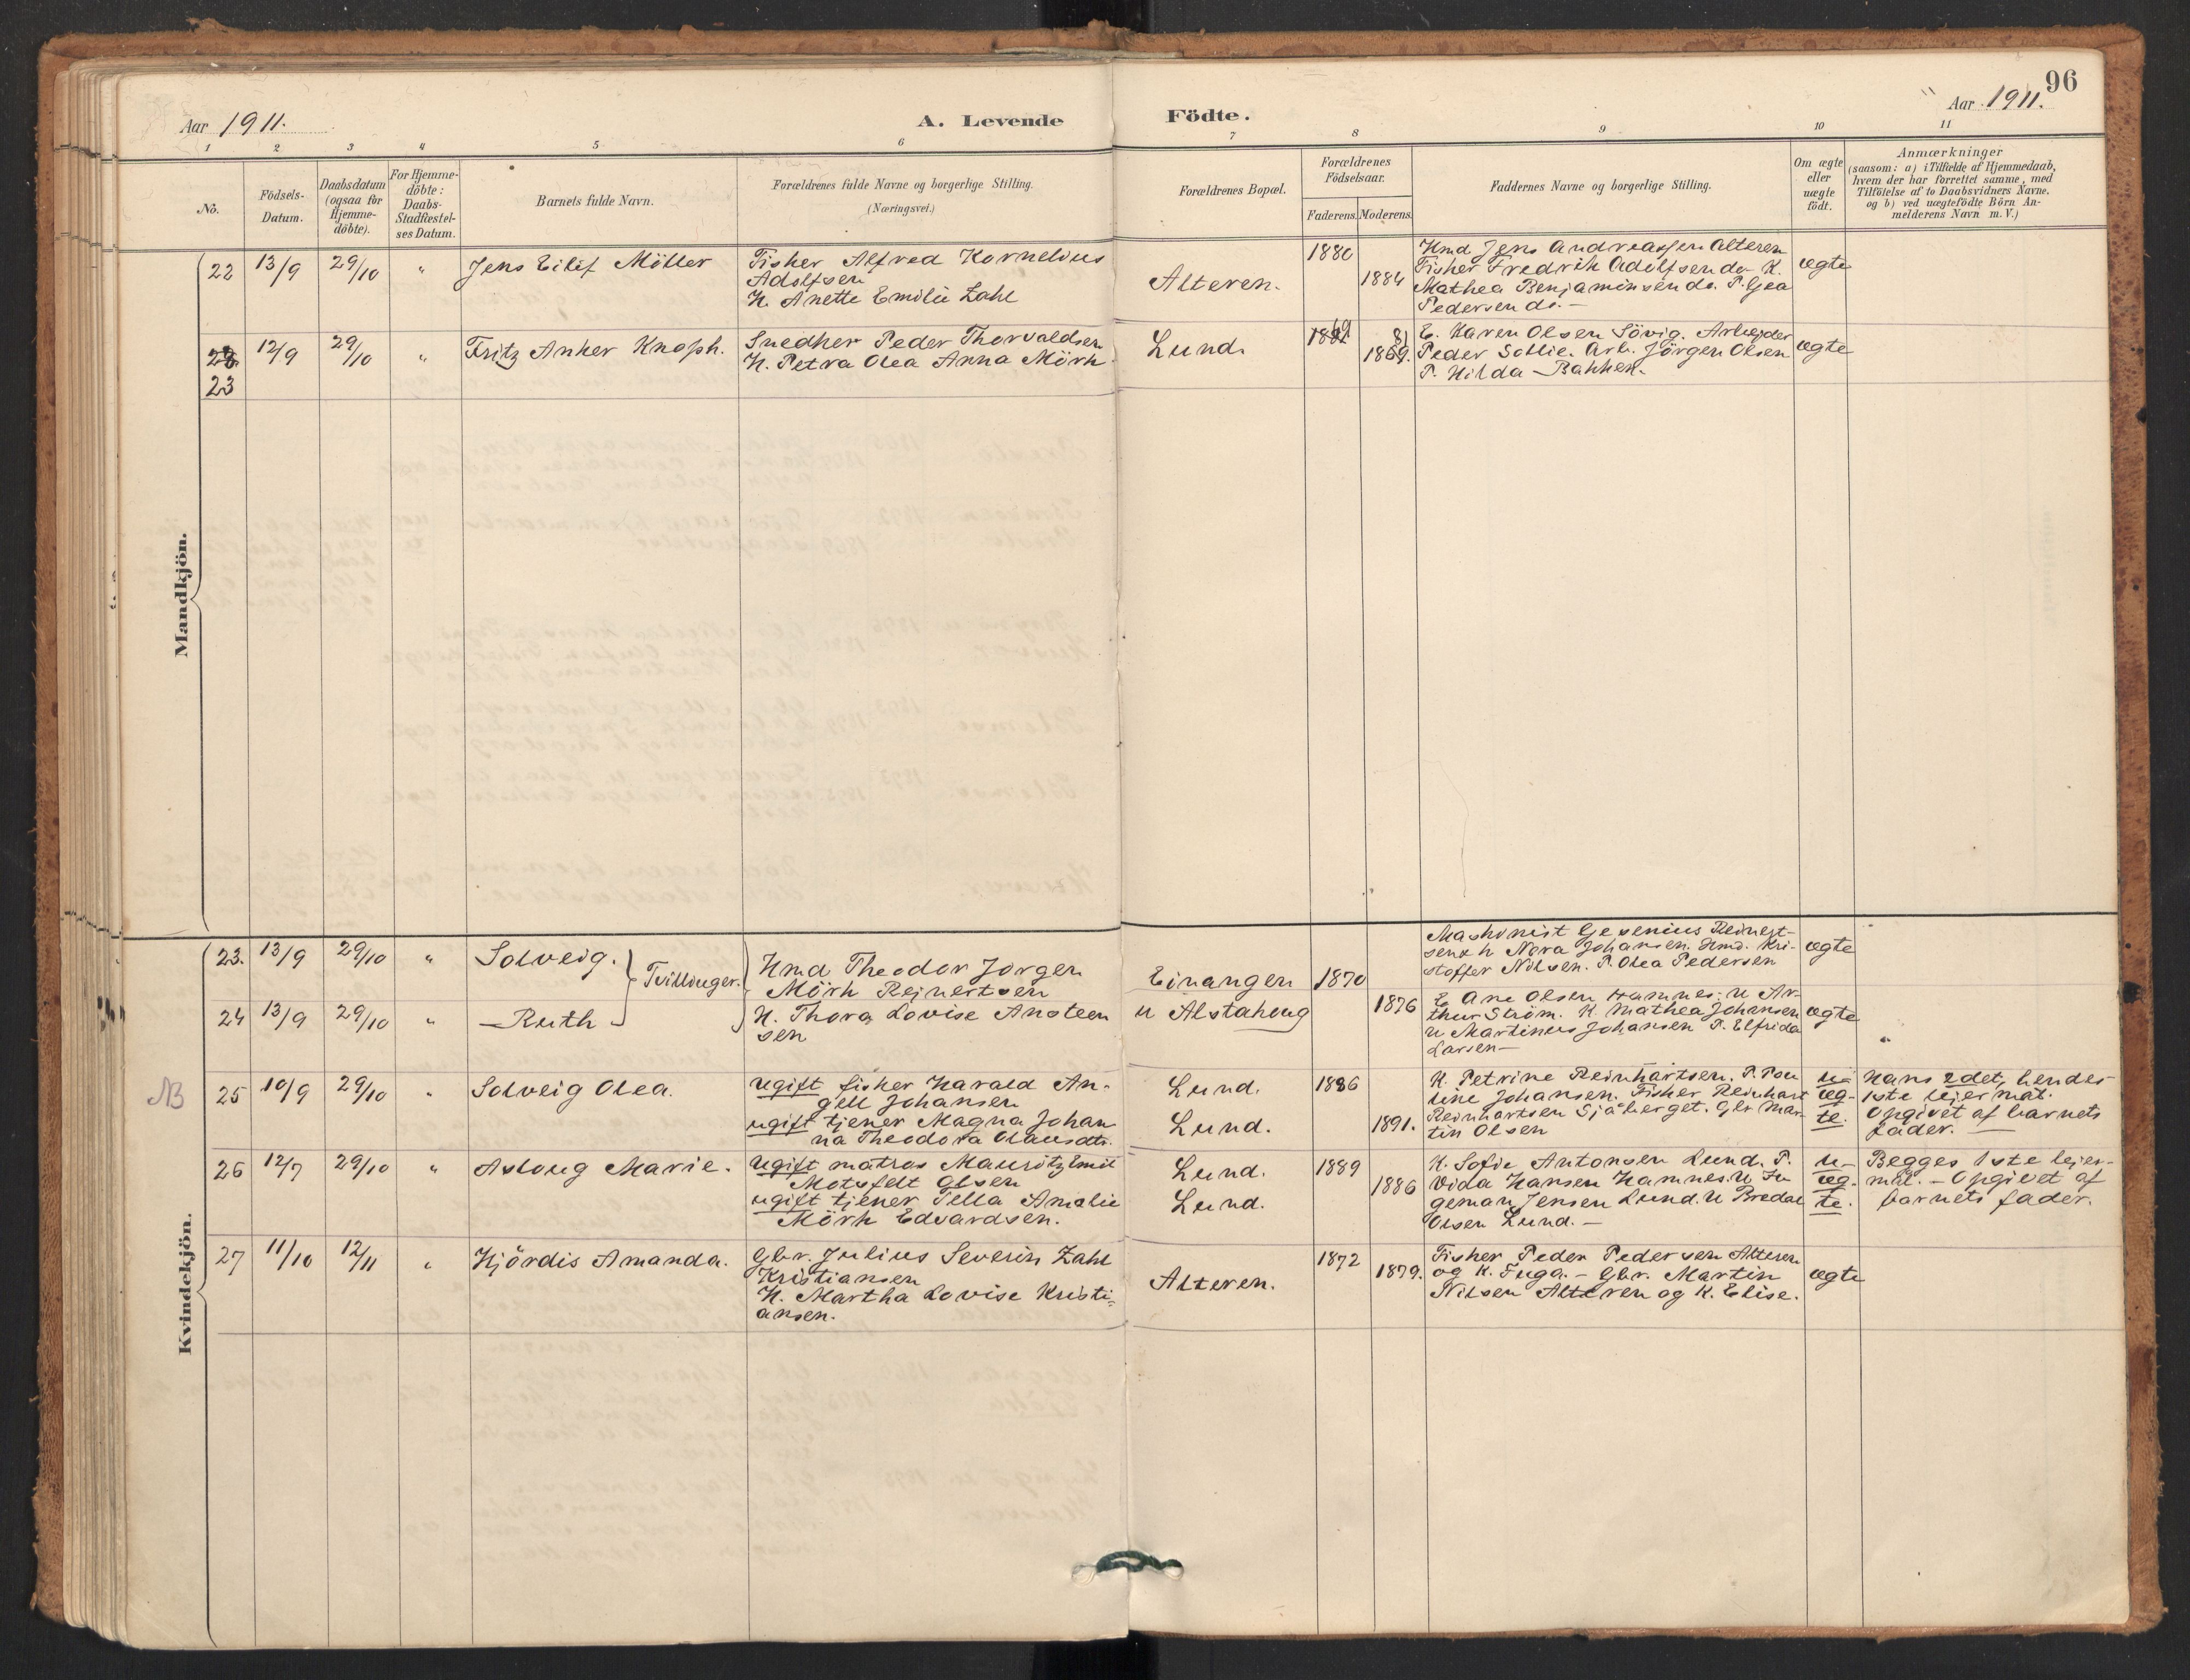 96
Aar 1911.
A. Levende Födte.
Aar 1911.
1 2 3 4 5 6 7 8 9 10 11
No.
Födsels-
Datum.
Daabsdatum
(ogsaa for
Hjemme-
döbte).
For Hjemme-
döbte:
Daabs-
Stadfæstel-
ses Datum.
Barnets fulde Navn.
Forældrenes fulde Navne og borgerlige Stilling.
(Næringsvei.)
Forældrenes Bopæl.
Forældrenes
Födselsaar.
Faderens. Moderens.
Faddernes Navne og borgerlige Stilling.
Om ægte
eller
uægte
født.
Anmærkninger
(saasom: a) i Tilfælde af Hjemmedaab,
hvem der har forrettet samme, med
Tilföielse af to Daabsvidners Navne.
og b) ved uægtefödte Börn An-
melderens Navn m. V.)
Mandkjön.
22 13/9 29/10 "
Jens Eilif Möller
Fisker Alfred Kornelius
Adolfsen
H. Anette Emilie Zahl
Alteren.
1880
1884
Kmd Jens Andreassen Alteren
Fisker Fredrik Adolfsen do K.
Mathea Benjaminsen do. P. Gea
Pedersen do. —
ægte
23 12/9 29/10 "
Fritz Anker Knoph.
Snedker Peder Thorvaldsen
H. Petra Olea Anna Mörk.
Lund.
E. Karen Olsen Sövig. Arbeider
Peder Sollie. Arb. Jörgen Olsen
P. Hilda Bakken.
ægte
Kvindekjön.
23. 13/9 29/10 "
Solveig.
Tvillinger.
Kmd Theodor Jorgen
Mörk Reinertsen
H. Thora Lovise Ansteen
sen
Einangen
n Alstahoug
1870
1876
Maskinist Gesenius Reinert-
sen & h Nora Johansen. Kmd. Kri-
stoffer Nilsen. P. Olea Pedersen
ægte
24 13/9 29/10 "
Ruth
E Ane Olsen Hamnes: U Ar-
thur Ström. K. Mathea Johansen
U Martinus Johansen P. Elfrida
Larsen —
ægte
"
NB
25 10/9 29/10 "
Solveig Olea.
ugift fisker Harald An-
gell Johansen
ugift tjener Magna Johan
na Theodora Olausdtr.
Lund.
Lund.
1886
1891.
K. Petrine Reinhartsen. P. Pau
line Johansen. Fisker Reinhart
Reinhartsen Sjåberget. Gbr Mar-
tin Olsen
u-
æg-
te.
Hans 2det, hendes
1ste leiermål.
Opgivet af barnets
fader. —
26 12/7 29/10 "
Aslaug Marie.
Ugift matros Mauritz Emil
Motzfeldt Olsen
ugift tjener Tella Amalie
Mörk Edvardsen.
Lund.
Lund.
1889
1886
K. Sofie Antonsen Lund. P.
Vida Hansen Hamnes. U In
geman Jensen Lund. U Bredal
Olsen Lund. —
u-
æg-
te.
Begges 1ste leier-
mål. — Opgivet af
barnets fader.
27 11/10 12/11 "
Hjördis Amanda.
Gbr. Julius Severin Zahl
Kristiansen
H. Martha Lovise Kristi-
ansen.
Alteren.
1872
1879.
Fisker Peder Pedersen Alteren
og K. Inga. — Gbr. Martin
Nilsen Alteren og K. Elise.
ægte